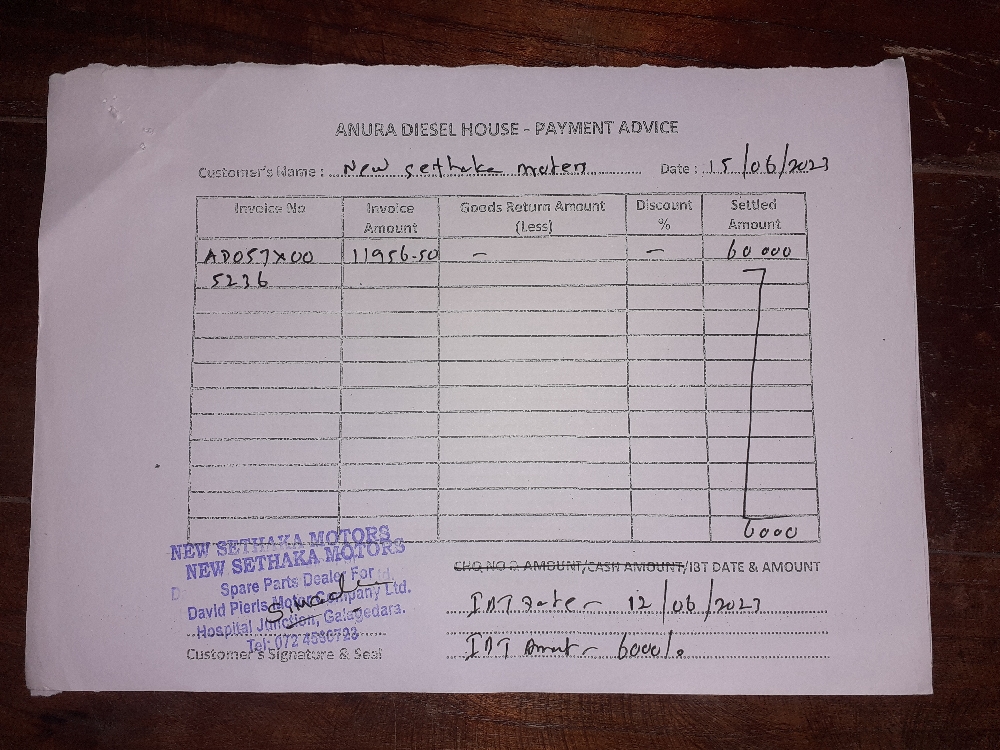 ANURA DIESEL HOUSE - PAYMENT ADVICE
Customer's Name : New sethaka moters Date : 15/06/2023
Invoice No Invoice Amount Goods Return Amount (Less) Discount % Settled Amount
AD057X00 11956-50 - - 60 000
5236
6000
NEW SETHAKA MOTORS
NEW SETHAKA MOTORS
Spare Parts Dealer For
David Pieris Motor Company Ltd.
Hospital Junction, Galagedara.
Tel: 072 4530723
Customer's Signature & Seal
CHQ NO & AMOUNT/CASH AMOUNT/IBT DATE & AMOUNT
IBT Date - 12/06/2023
IBT Amount - 6000/.